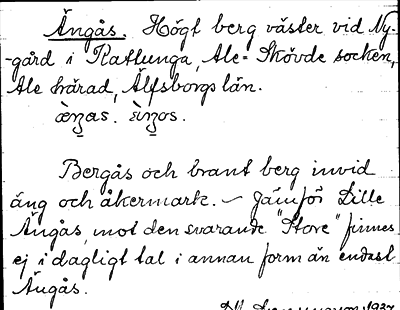 Ängås. Högt berg väster vid Ny-
-gård i Ratlunga, Ale-Skövde socken,
Ale härad, Älfsborgs län.
Bergås och brant berg invid
äng och åkermark. - Jämför Lille
Ängås, mot den svarande "Store" finnes
ej i dagligt tal i annan form än endast
Ängås.